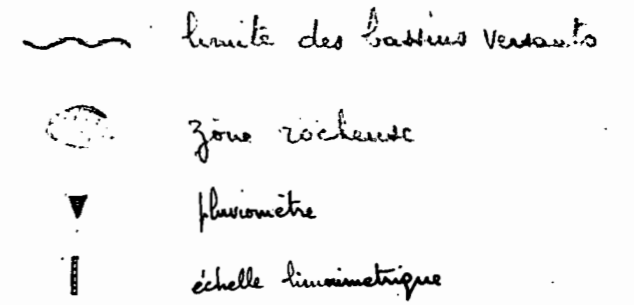 limite des bassins versants
zône rocheuse
pluviomètre
échelle limnimetrique